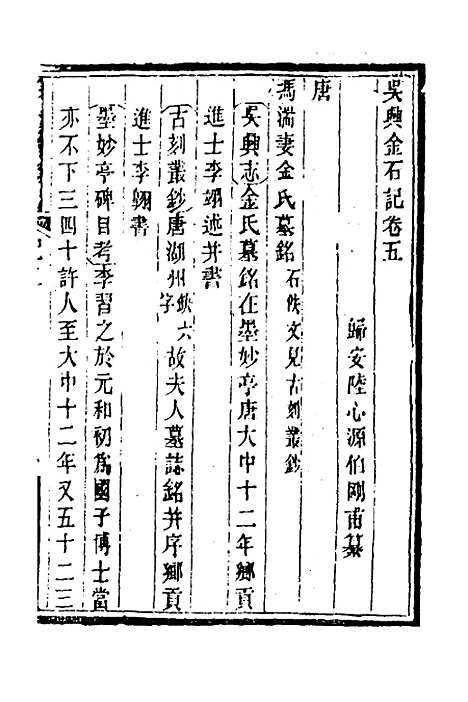 吳興金石記卷五
歸安陸心源伯剛甫纂
唐
馮湍妻金氏墓銘 石佚文見古刻叢鈔
吳興志金氏墓銘在墨妙亭唐大中十二年鄉貢
進士李翊述并書
古刻叢鈔唐湖州缺六字故夫人墓誌銘并序鄉貢
進士李翱書
墨妙亭碑目考李習之於元和初爲國子博士當
亦不下三四十許人至大中十二年又五十二三